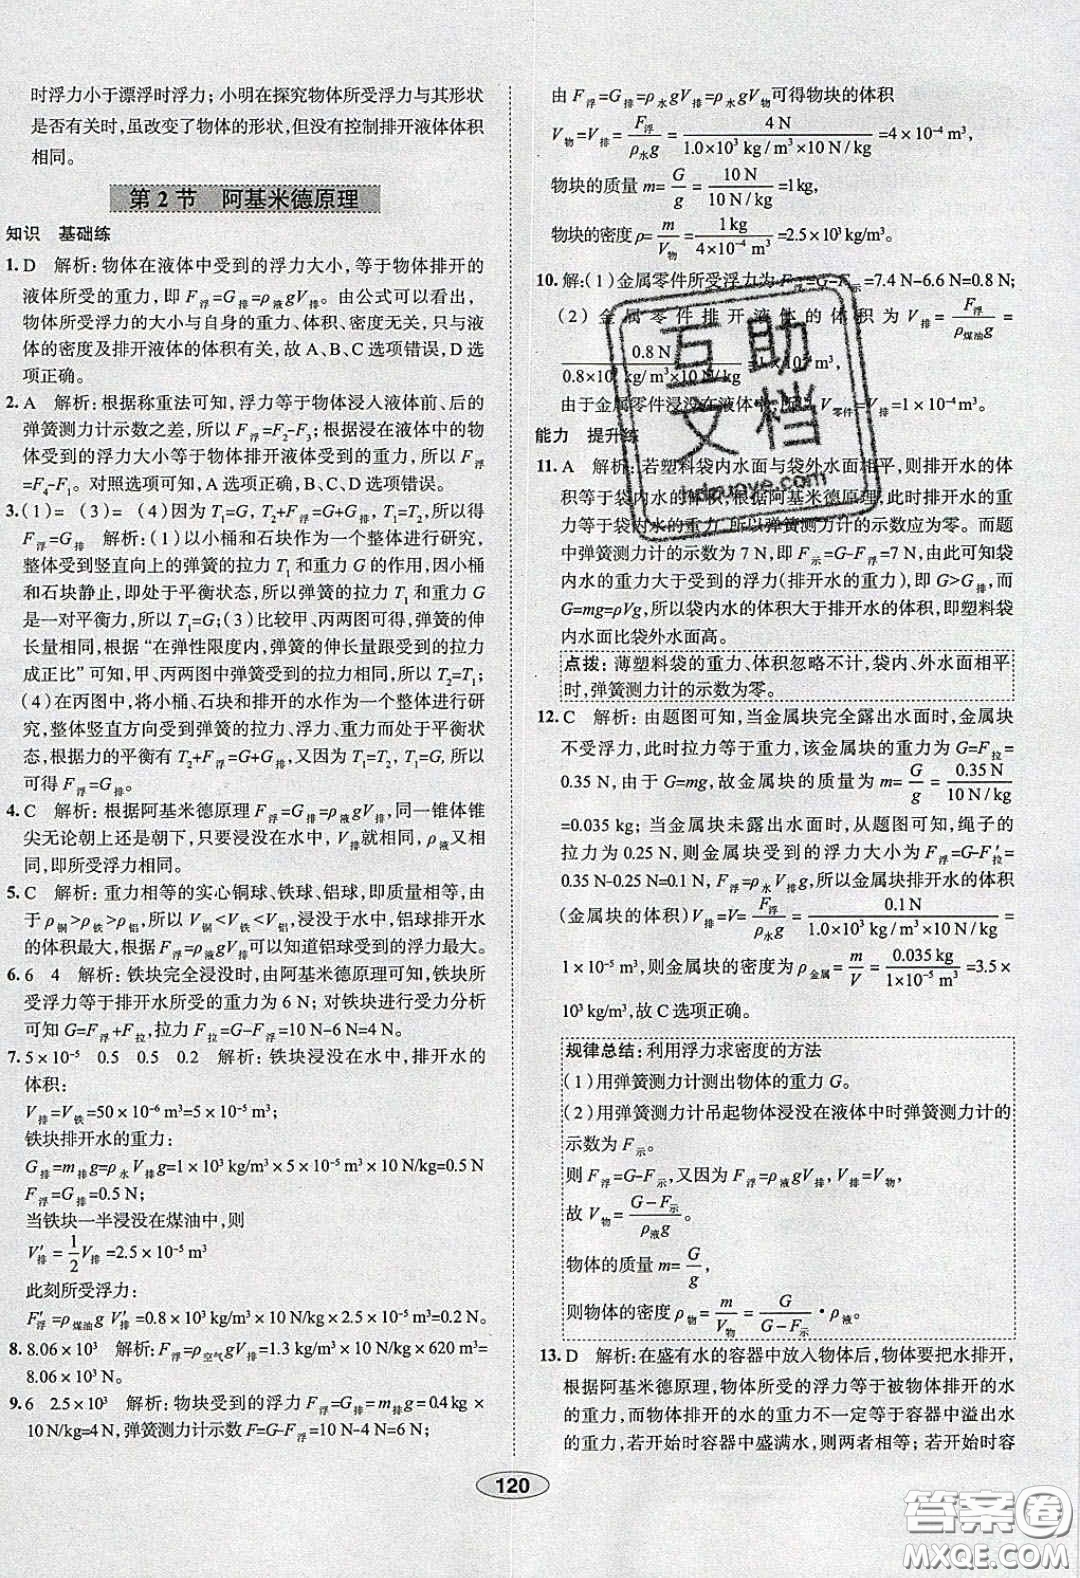 时浮力小于漂浮时浮力；小明在探究物体所受浮力与其形状
是否有关时，虽改变了物体的形状，但没有控制排开液体体积
相同。
第2节 阿基米德原理
知识 基础练
1. D 解析：物体在液体中受到的浮力大小，等于物体排开的
液体所受的重力，即 F浮=G排=ρ液gV排。由公式可以看出，
物体所受浮力的大小与自身的重力、体积、密度无关，只与液
体的密度及排开液体的体积有关，故A、B、C选项错误，D选
项正确。
2. A 解析：根据称重法可知，浮力等于物体浸入液体前、后的
弹簧测力计示数之差，所以 F浮=F2-F3；根据浸在液体中的物
体受到的浮力大小等于物体排开液体受到的重力，所以 F浮
=F4-F1。对照选项可知，A正确，B、C、D错误。
3. (1)= (3)= (4)因为 T1=G，T2+F浮=G+G排，T1=T2，所以得
F浮=G排 解析：(1)以小桶和石块作为一个整体进行研究，
整体受到竖直向上的弹簧的拉力 T1和重力 G 的作用，因小桶
和石块静止，即处于平衡状态，所以弹簧的拉力 T1和重力G的
大小关系为 T1=G；(3)比较甲、丙两图可知，弹簧的伸
长量相同，根据“在弹性限度内，弹簧的伸长量跟受到的拉力
成正比”可知，甲、丙两图中弹簧受到的拉力关系为 T2=T1；
(4)在丙图中，将小桶、石块和排开的水作为一个整体进行研
究，整体竖直方向受到弹簧的拉力、浮力、重力而处于平衡状
态，根据力的平衡有 T2+F浮=G+G排，又因为 T1=G，T1=T2，所以
可得 F浮=G排。
4. C 解析：根据阿基米德原理 F浮=G排=ρ液gV排，同一锥体锥
尖无论朝上还是朝下，只要浸没在水中，V排就相同，ρ液又相
同，即所受浮力相同。
5. C 解析：重力相等的实心铜球、铁球、铝球，即质量相等，由
于 ρ铜>ρ铁>ρ铝，所以 V铜<V铁<V铝，浸没于水中，铝球排开水
的体积最大，根据 F浮=ρ液gV排可以知道铝球受到的浮力最大。
6. 6 4 解析：铁块完全浸没时，由阿基米德原理可知，铁块所
受浮力等于排开水所受的重力为 6 N；对铁块进行受力分析
可知 G=F浮+F拉，拉力 F拉=G-F浮=10 N-6 N=4 N。
7. 5×10⁻⁵ 0.5 0.5 0.2 解析：铁块浸没在水中，排开水的
体积：
V排=V铁=50×10⁻⁶ m³=5×10⁻⁵ m³；
铁块排开水的重力：
G排=m排g=ρ水V排g=1×10³ kg/m³×5×10⁻⁵ m³×10 N/kg=0.5 N
F浮=G排=0.5 N；
当铁块一半浸没在煤油中，则
V′排=1/2V排=2.5×10⁻⁵ m³
此刻所受浮力：
F′浮=ρ煤油g V′排=0.8×10³ kg/m³×10 N/kg×2.5×10⁻⁵ m³=0.2 N。
8. 8.06×10³ 解析：F浮=ρ空气gV排=1.3 kg/m³×10 N/kg×620 m³=
8.06×10³ N。
9. 6 2.5×10³ 解析：物块受到的浮力 F浮=G排=m排g=0.4 kg×
10 N/kg=4 N，弹簧测力计示数 F=G-F浮=10 N-4 N=6 N；
由 F浮=G排=ρ水gV排=ρ水gV物可得物块的体积
V物=V排=F浮/ρ水g=4 N/1.0×10³ kg/m³×10 N/kg=4×10⁻⁴ m³，
物块的质量 m=G/g=10 N/10 N/kg=1kg，
物块的密度 ρ=m/V物=1 kg/4×10⁻⁴ m³=2.5×10³ kg/m³。
10. 解：(1)金属零件所受浮力为 F浮=G-F示=7.4 N-6.6 N=0.8 N；
(2)金属零件排开液体的体积为 V排=F浮/ρ煤油g=
0.8 N/0.8×10³ kg/m³×10 N/kg=1×10⁻⁴ m³，
由于金属零件浸没在液体中，所以 V零件=V排=1×10⁻⁴ m³。
能力 提升练
11. A 解析：若塑料袋内水面与袋外水面相平，则排开水的体
积等于袋内水的体积，根据阿基米德原理，此时排开水的重
力等于袋内水的重力，所以弹簧测力计的示数应为零。而题
中弹簧测力计的示数为 7 N，即 F示=G-F浮=7 N，由此可知袋
内水的重力大于受到的浮力(排开水的重力)，即 G>G排，而
G=mg=ρVg，所以袋内水的体积大于排开水的体积，即塑料袋
内水面比袋外水面高。
点拨：薄塑料袋的重力、体积忽略不计，袋内、外水面相平
时，弹簧测力计的示数为零。
12. C 解析：由题图可知，当金属块完全露出水面时，金属块
不受浮力，此时拉力等于重力，该金属块的重力为 G=F拉=
0.35 N，由于 G=mg，故金属块的质量为 m=G/g=0.35 N/10 N/kg
=0.035 kg；当金属块未露出水面时，从题图可知，绳子的
拉力为 0.25 N，则金属块受到的浮力大小为 F浮=G-F′拉=
0.35 N-0.25 N=0.1 N，F浮=ρ水V排g，金属块排开水的体积
(金属块的体积) V排=V=F浮/ρ水g=0.1 N/1.0×10³ kg/m³×10 N/kg=
1×10⁻⁵ m³，则金属块的密度 ρ金属=m/V=0.035 kg/1×10⁻⁵ m³=3.5×
10³ kg/m³，故 C 选项正确。
规律总结：利用浮力求密度的方法
(1)用弹簧测力计测出物体的重力 G。
(2)用弹簧测力计吊起物体浸没在液体中时弹簧测力计的
示数为 F示。
则 F浮=G-F示，又因为 F浮=ρ液gV排，V排=V物，
故 V物=G-F示/ρ液g。
物体的质量 m=G/g
则物体的密度 ρ物=m/V物=G/G-F示·ρ液。
13. D 解析：在盛有水的容器中放入物体后，物体要把水排开，
根据阿基米德原理，物体所受的浮力等于被物体排开的水
的重力，而物体排开的水的重力不一定等于容器中溢出水
的重力，若开始时容器中盛满水，则两者相等；若开始时容
120
互助
文档
hdzuoye.com
答案圈
MXQE.COM